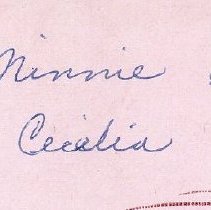 Minnie
Cecelia